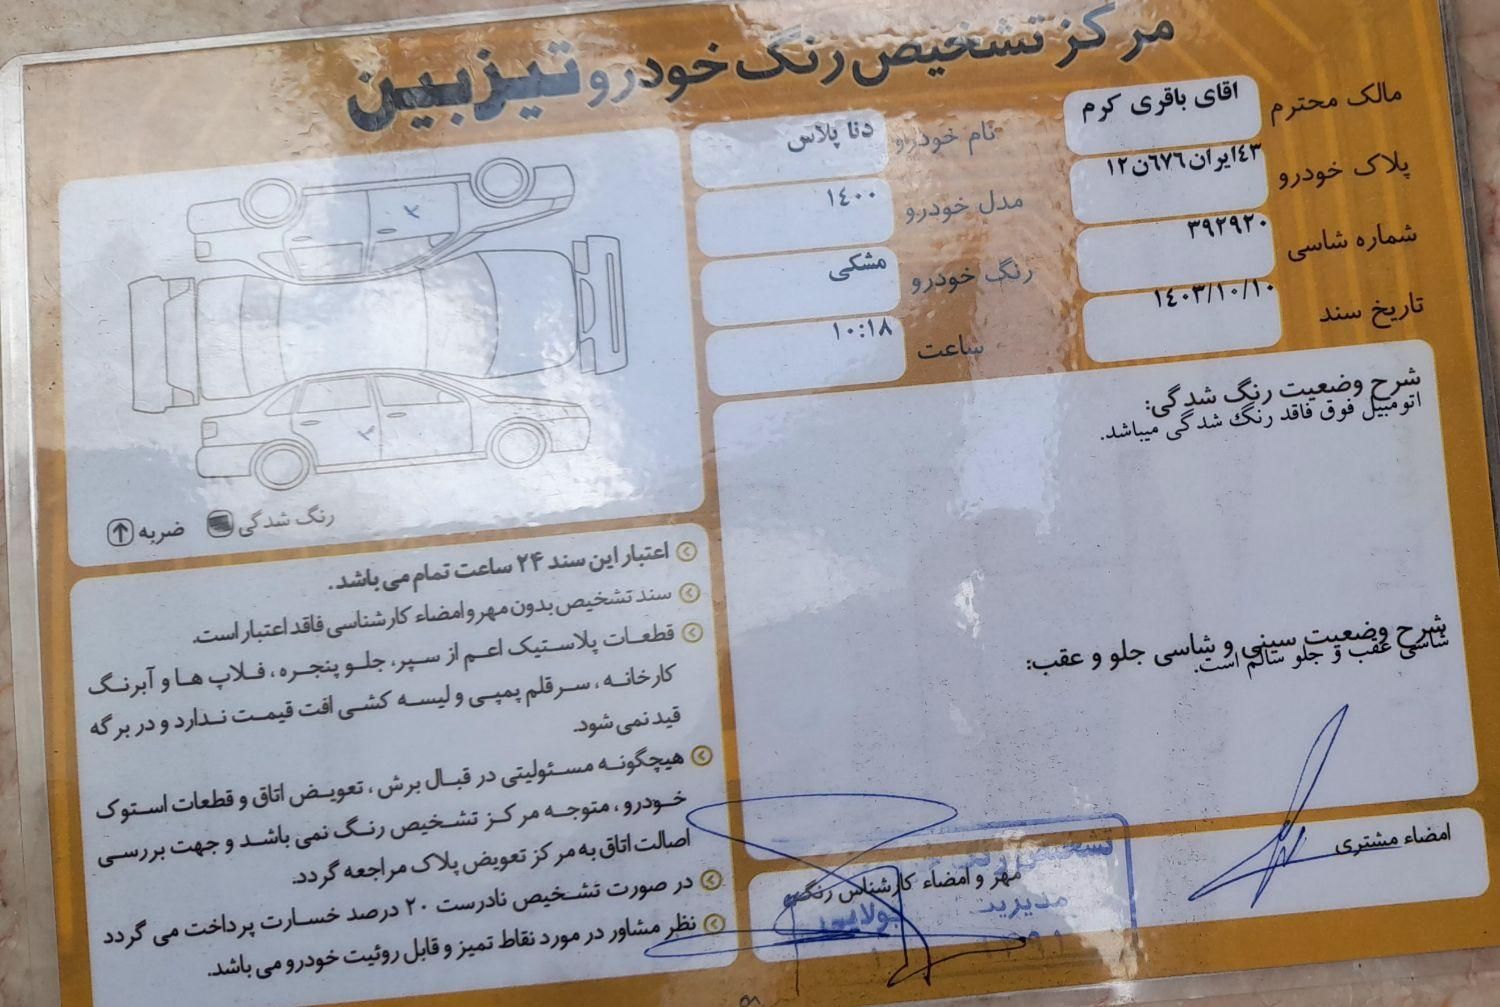 مرکز تشخیص رنگ خودرو تیزبین
مالک محترم اقای باقری کرم
نام خودرو دنا پلاس
پلاک خودرو ٤٣ایران٦٧٦ن١٢
مدل خودرو ١٤٠٠
شماره شاسی ٣٩٢٩٢٠
رنگ خودرو مشکی
تاریخ سند ١٤٠٣/١٠/١٠
ساعت ١٠:١٨
شرح وضعیت رنگ شدگی:
اتومبیل فوق فاقد رنگ شدگی میباشد.
شرح وضعیت سینی و شاسی جلو و عقب:
شاسی عقب و جلو سالم است.
امضاء مشتری
مهر و امضاء کارشناس رنگ
تشخیص رنگ
مدیریت
رنگ شدگی
ضربه
اعتبار این سند ۲۴ ساعت تمام می باشد.
سند تشخیص بدون مهر و امضاء کارشناسی فاقد اعتبار است.
قطعات پلاستیک اعم از سپر، جلو پنجره، فلاپ ها و آبرنگ
کارخانه، سرقلم پمپی و لیسه کشی افت قیمت ندارد و در برگه
قید نمی شود.
هیچگونه مسئولیتی در قبال برش، تعویض اتاق و قطعات استوک
خودرو، متوجه مرکز تشخیص رنگ نمی باشد و جهت بررسی
اصالت اتاق به مرکز تعویض پلاک مراجعه گردد.
در صورت تشخیص نادرست ۲۰ درصد خسارت پرداخت می گردد
نظر مشاور در مورد نقاط تمیز و قابل روئیت خودرو می باشد.